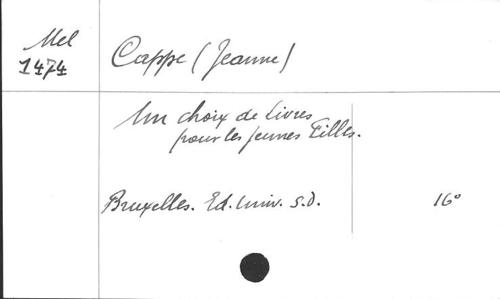 Mel
1474
Cappe (Jeanne)
Un choix de livres
pour les jeunes Filles.
Bruxelles. Ed. Univ. s.d.
16°